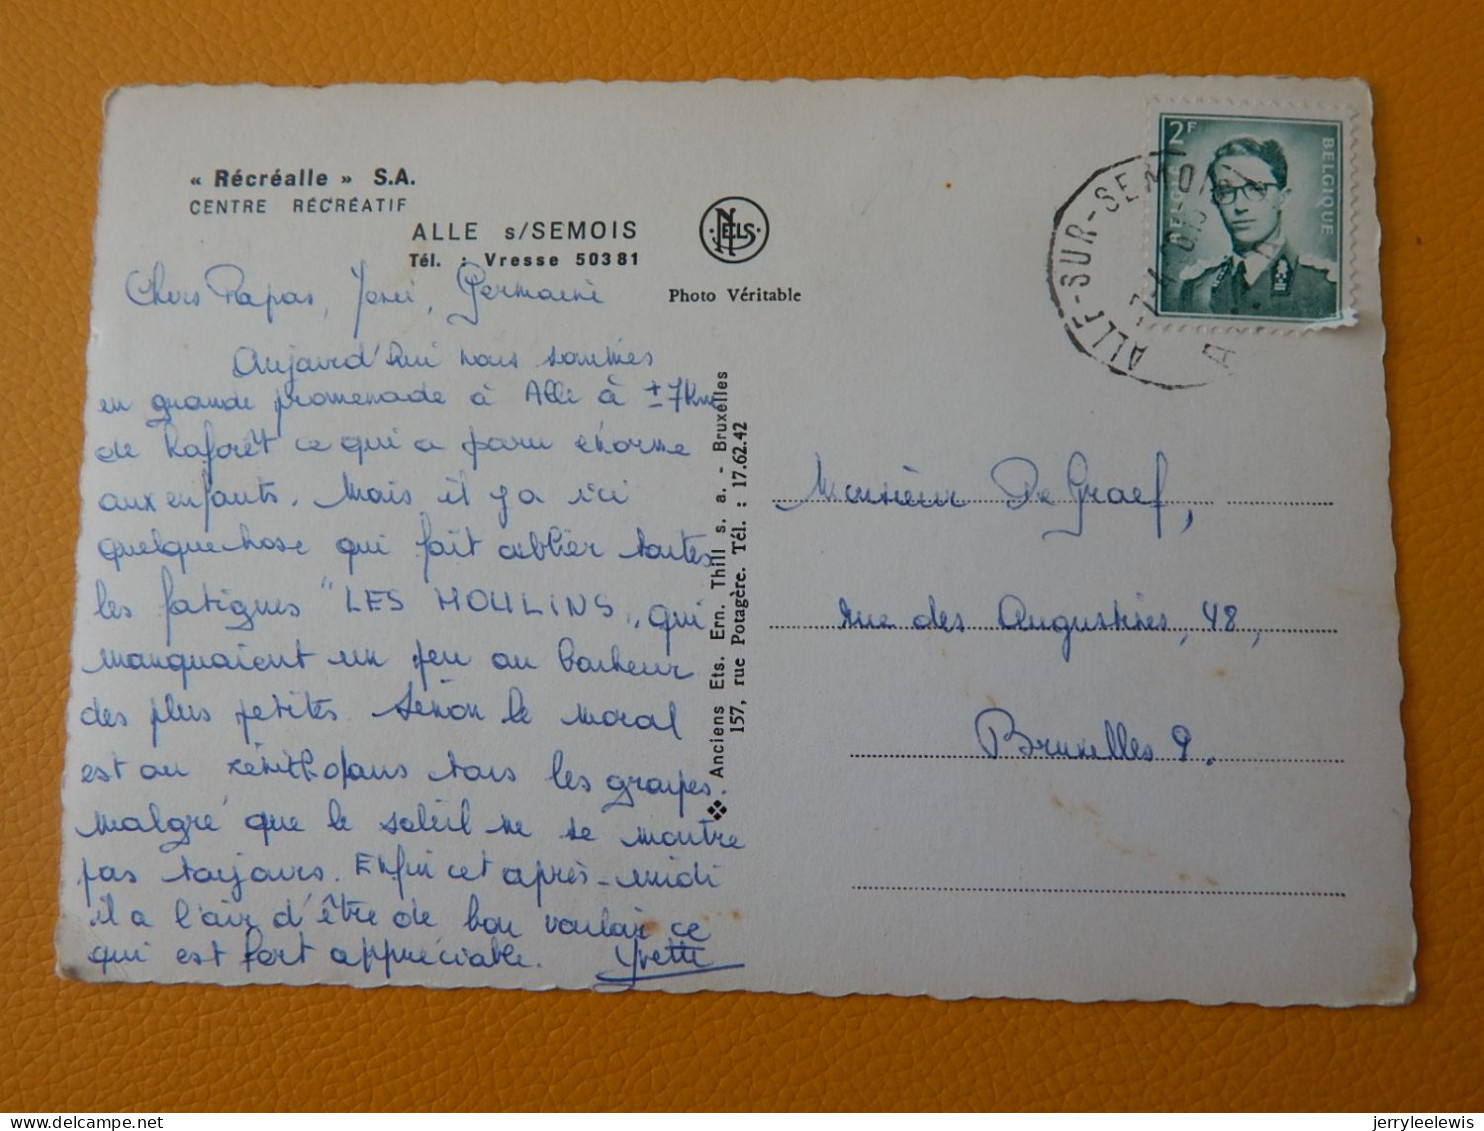 « Récréalle » S.A.
CENTRE RÉCRÉATIF
ALLE s/SEMOIS
Tél. : Vresse 50381
NELS
Photo Véritable
2F
BELGIQUE
ALLE-SUR-SEMOIS
Chers Papas, José, Germaine
Aujourd'hui nous sommes
en grande promenade à Alle à ± 7 km
de Laforêt ce qui a paru énorme
aux enfants. Mais il y a ici
quelque chose qui fait oublier toutes
les fatigues "LES MOULINS„ qui
manquaient un peu au bonheur
des plus petites. Sinon le moral
est au zénith dans tous les groupes.
Malgré que le soleil ne se montre
pas toujours. Enfin cet après-midi
il a l'air d'être de bon vouloir ce
qui est fort appréciable. Yvette
Anciens Ets. Ern. Thill s. a. - Bruxelles
157, rue Potagère. Tél. : 17.62.42
Monsieur De Graef,
rue des Augustines, 48,
Bruxelles 9.
jerryleelewis